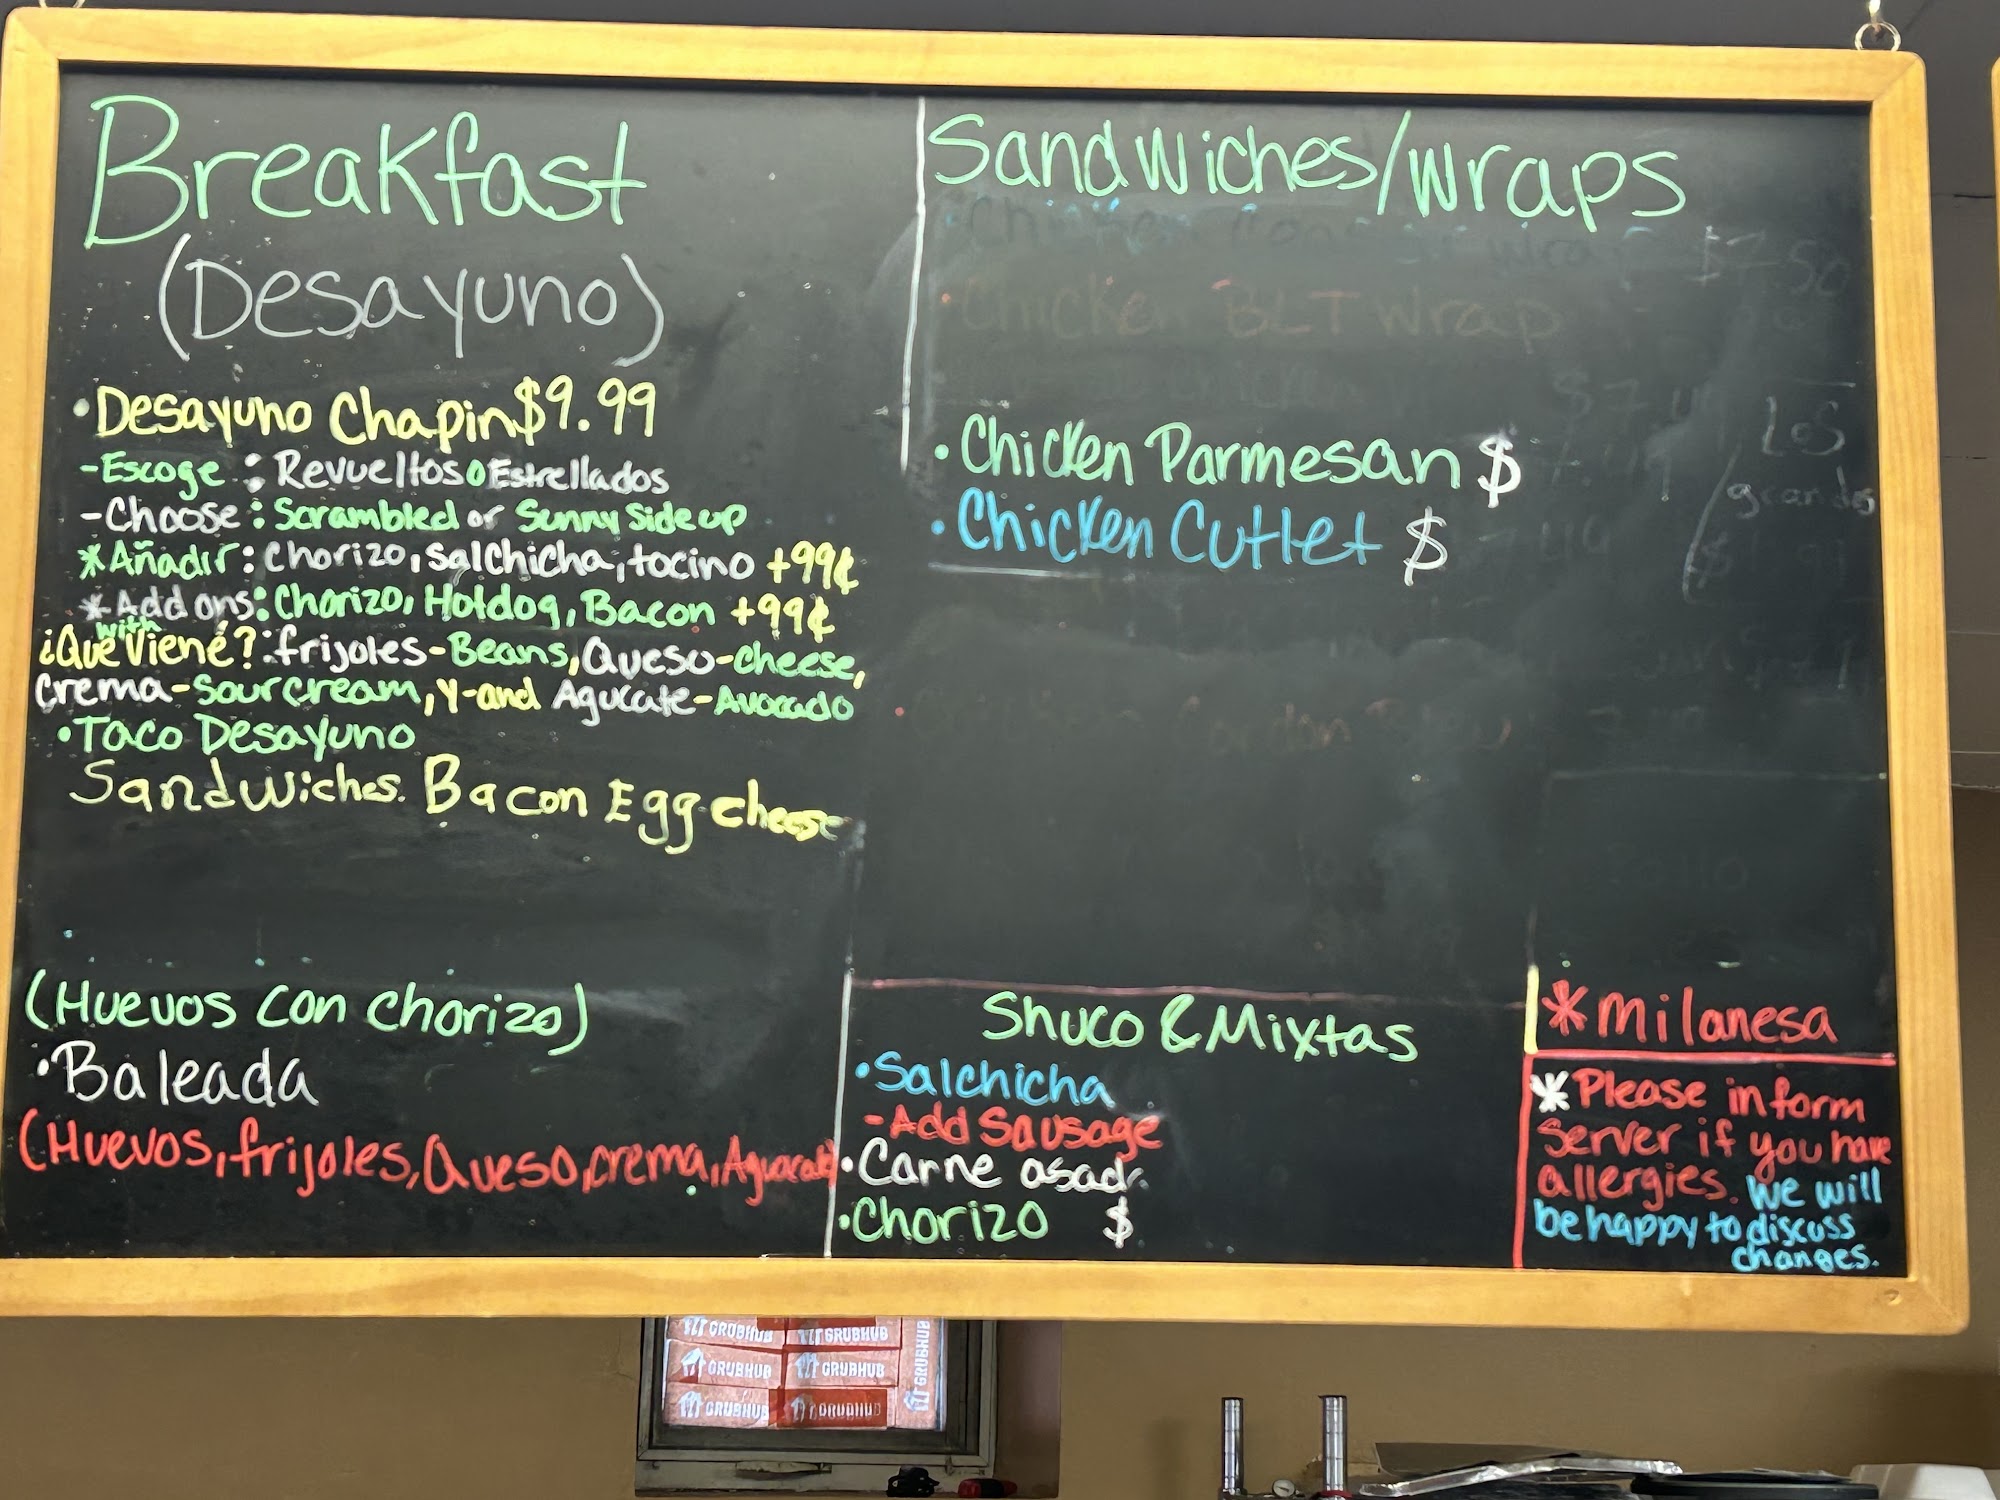 Breakfast
(Desayuno)
• Desayuno Chapin $9.99
- Escoge : Revueltos o Estrellados
- Choose : Scrambled or Sunny Side up
* Añadir : Chorizo, salchicha, tocino +99¢
* Add ons : Chorizo, Hotdog, Bacon +99¢
with
¿Que Viené? : frijoles - Beans, Queso - cheese,
Crema - Sour cream, Y - and Agucate - Avocado
• Taco Desayuno
Sandwiches. Bacon Egg cheese
(Huevos con chorizo)
• Baleada
(Huevos, frijoles, Queso, crema,
Sandwiches/Wraps
Chicken BLT Wrap
• Chicken Parmesan $
• Chicken Cutlet $
Los
grandes
Shuco & Mixtas
• Salchicha
- Add Sausage
• Carne asada
• Chorizo $
* Milanesa
* Please inform
Server if you have
allergies. We will
be happy to discuss
changes.
GRUBHUB GRUBHUB
GRUBHUB GRUBHUB
GRUBHUB GRUBHUB
GRUBHUB